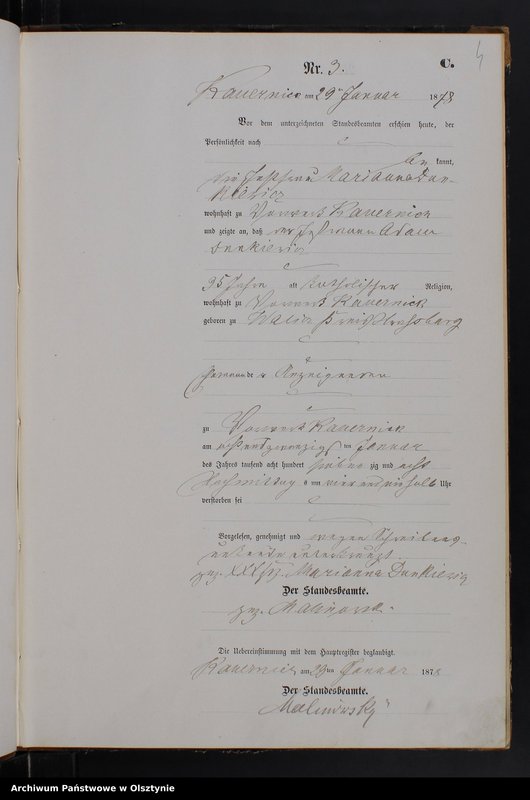 Nr. 3. C. 4
Kauernick am 29ten Januar 1878
Vor dem unterzeichneten Standesbeamten erschien heute, der
Persönlichkeit nach
be kannt,
die Marianna Dan-
kiewicz
wohnhaft zu Vorwerk Kauernick
und zeigte an, daß der Ehemann Adam
Dankiewicz
35 Jahre alt katholischer Religion,
wohnhaft zu Vorwerk Kauernick
geboren zu Kreis Strasburg
Ehemann de r Anzeigenden
zu Vorwerk Kauernick
am acht und zwanzigsten Januar
des Jahres tausend acht hundert sieben zig und acht
Nachmittag s um vier und einhalb Uhr
verstorben sei
Vorgelesen, genehmigt und wegen Schreibens-
unkunde unterkreuzt
gez. XXX Marianna Dankiewicz
Der Standesbeamte.
gez. Malinowski.
Die Uebereinstimmung mit dem Hauptregister beglaubigt.
Kauernick am 29ten Januar 1878
Der Standesbeamte.
Malinowski
Archiwum Państwowe w Olsztynie